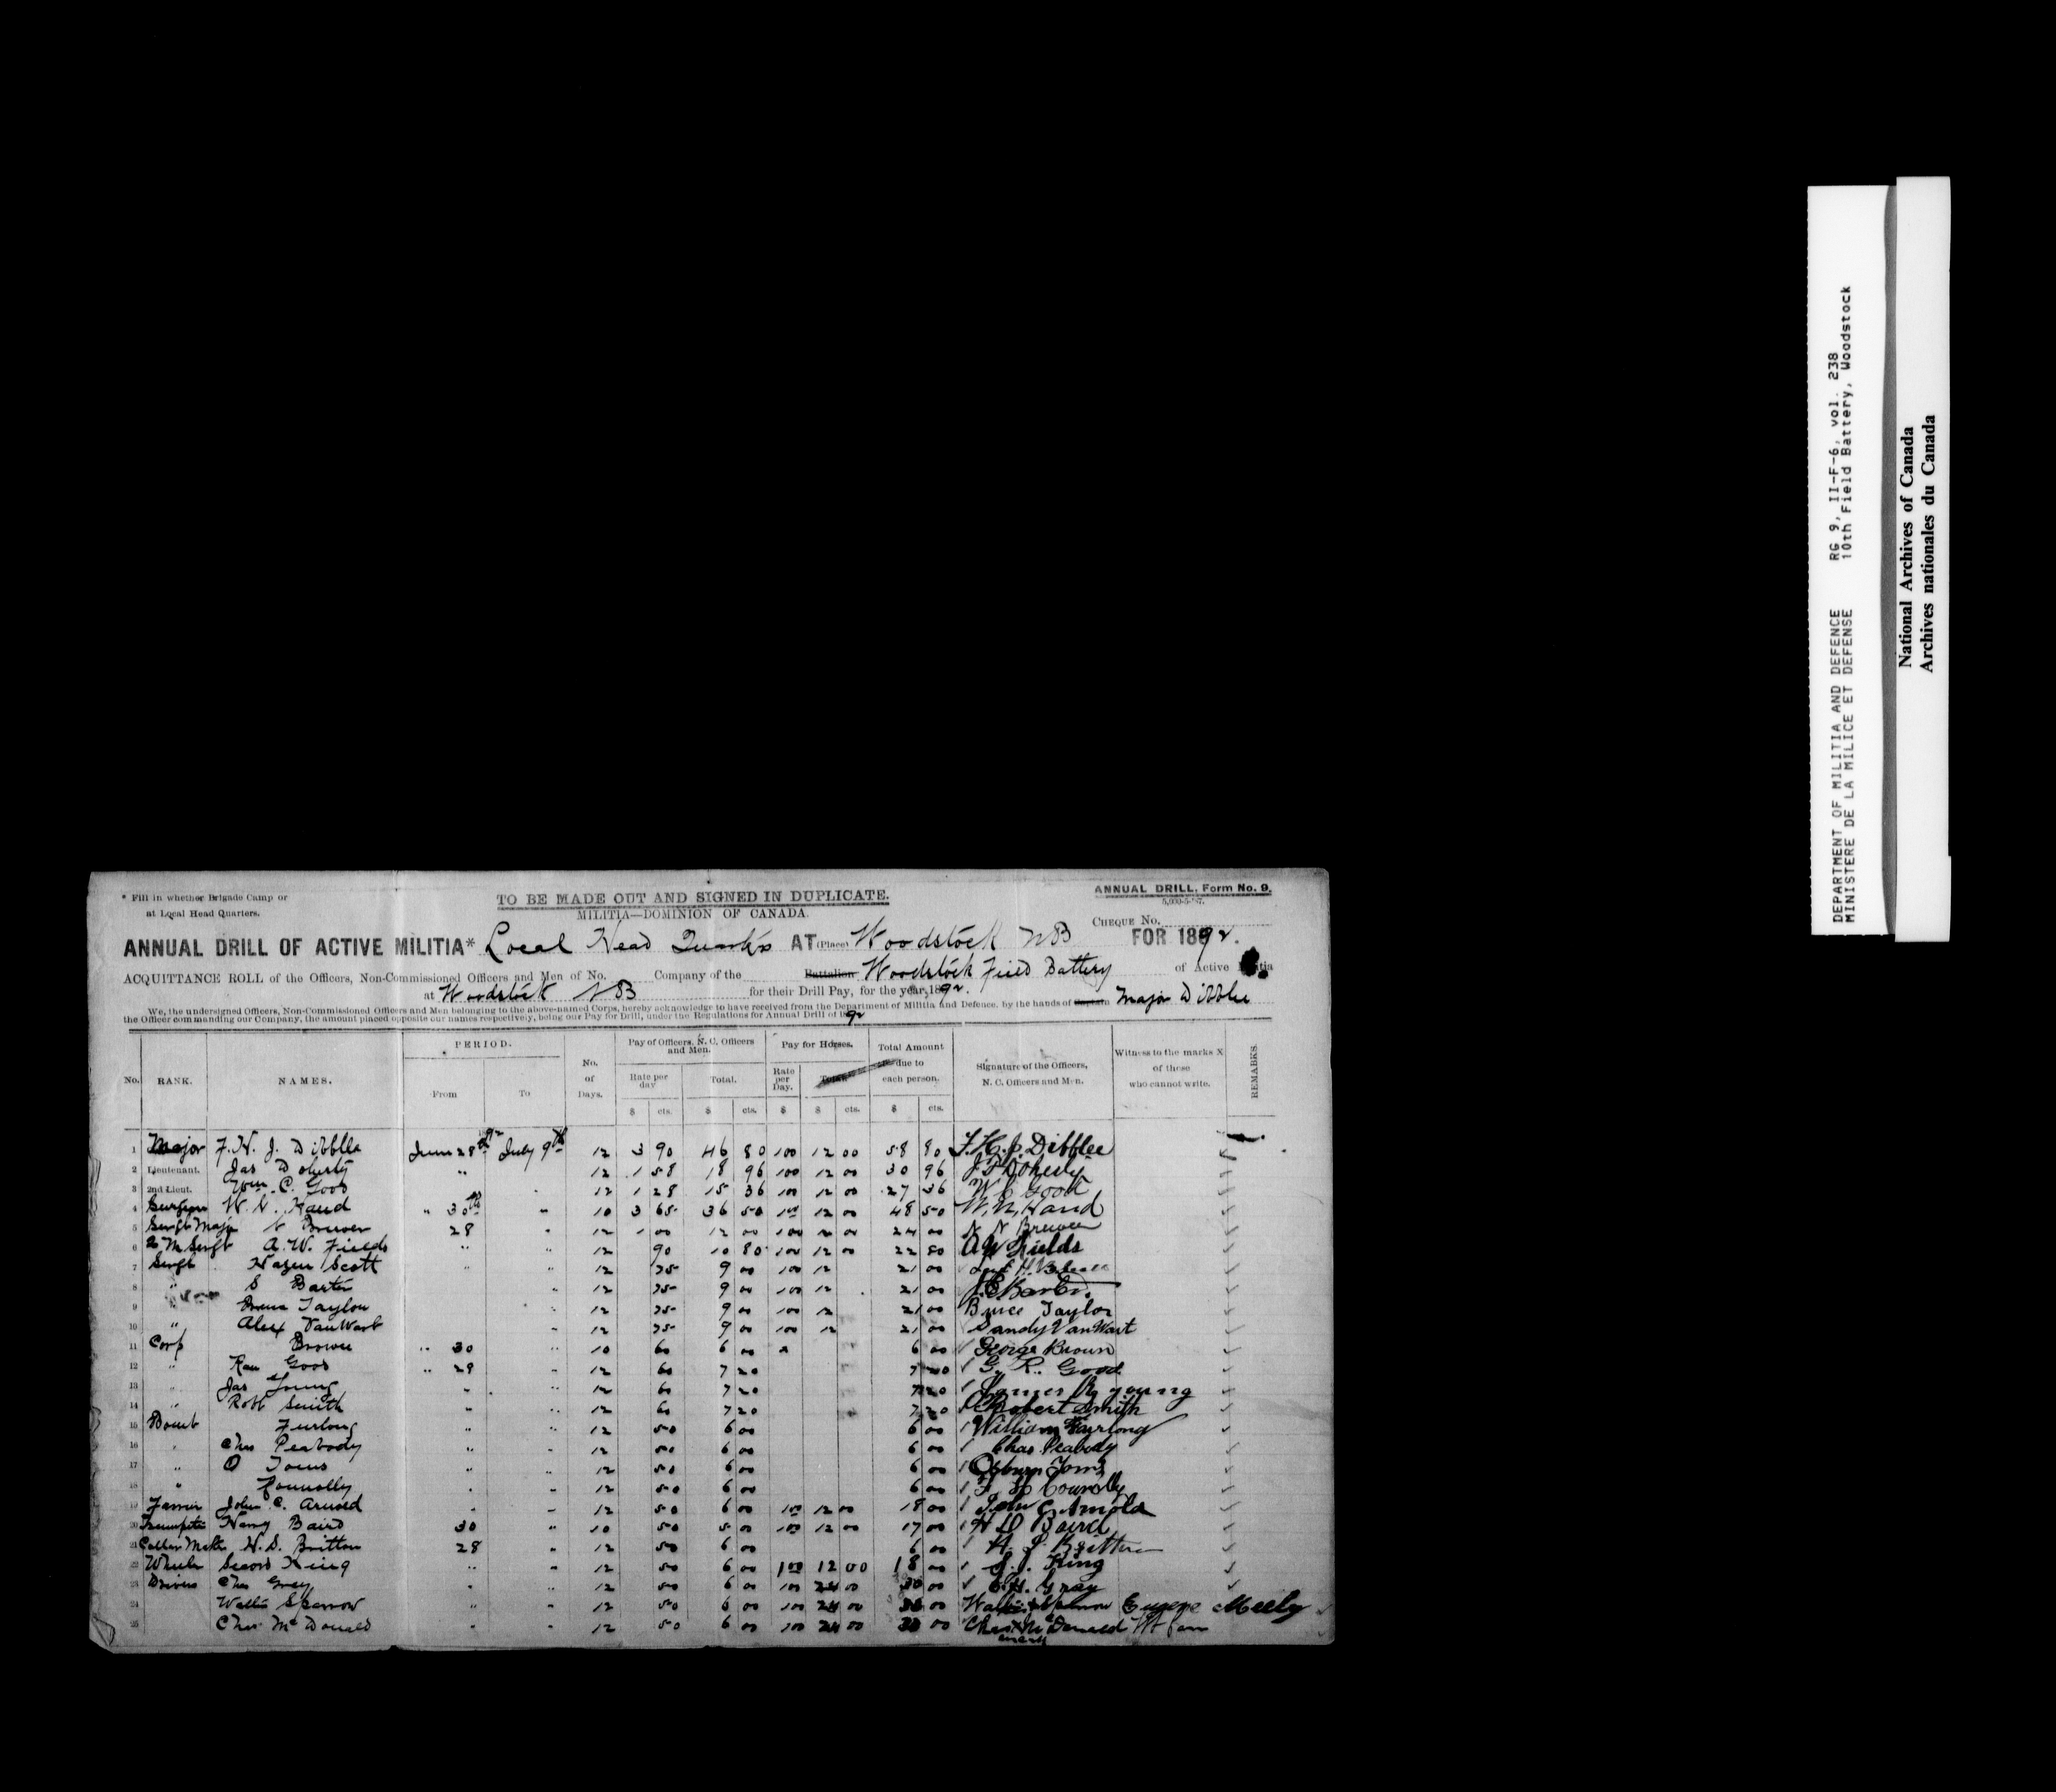 * Fill in whether Brigade Camp or
at Local Head Quarters.
TO BE MADE OUT AND SIGNED IN DUPLICATE.
MILITIA—DOMINION OF CANADA.
ANNUAL DRILL. Form No. 9.
CHEQUE No.
ANNUAL DRILL OF ACTIVE MILITIA* Local Head Quarters AT (Place) Woodstock NB FOR 1892.
ACQUITTANCE ROLL of the Officers, Non-Commissioned Officers and Men of No. Company of the Battalion Woodstock Field Battery of Active Militia
at Woodstock NB for their Drill Pay, for the year, 1892.
We, the undersigned Officers, Non-Commissioned Officers and Men belonging to the above-named Corps, hereby acknowledge to have received from the Department of Militia and Defence, by the hands of Captain Major Dibblee
the Officer commanding our Company, the amount placed opposite our names respectively, being our Pay for Drill, under the Regulations for Annual Drill of 1892
No. RANK. NAMES. PERIOD. From To No. of Days. Pay of Officers, N. C. Officers and Men. Rate per day Total. Pay for Horses. Rate per Day. Total Total Amount due to each person. Signature of the Officers, N. C. Officers and Men. Witness to the marks X of those who cannot write. REMARKS.
$ cts. $ cts. $ $ cts. $ cts.
1 Major F. H. J. Dibblee June 28th July 9th 12 3 90 46 80 100 12 00 58 80 F. H. J. Dibblee
2 Lieutenant. Jas Doherty " 12 1 58 18 96 100 12 00 30 96 Doherty
3 2nd Lieut. Wm. C. Good 12 1 28 15 36 100 12 00 27 36 W C Good
4 Surgeon W. N. Hand " 30th " 10 3 65 36 50 100 12 00 48 50 W. N. Hand
5 Sergt Major N Brewer 28 " 12 1 00 12 00 100 12 00 24 00 N Brewer
6 Q M Sergt A. W. Fields " " 12 90 10 80 100 12 00 22 80 A W Fields
7 Sergt Hazen Scott " 12 75 9 00 100 12 21 00
8 " S Barter " 12 75 9 00 100 12 21 00
9 " Bruce Taylor " 12 75 9 00 100 12 21 00 Bruce Taylor
10 " Alex VanWart " 12 75 9 00 100 12 21 00 Sandy VanWart
11 Corp Brown " 30 " 10 60 6 00 6 00 George Brown
12 " Good " 28 " 12 60 7 20 7 20 G. R. Good
13 " Jas Young " " 12 60 7 20 7 20 James Young
14 " Robt Smith " " 12 60 7 20 7 20 Robert Smith
15 Bomb Furlong " " 12 50 6 00 6 00 William Furlong
16 " Chas Peabody " " 12 50 6 00 6 00 Chas Peabody
17 " O Toms " " 12 50 6 00 6 00 Osburn Toms
18 " Connolly " " 12 50 6 00 6 00 Connolly
19 Farrier John C. Arnold " " 12 50 6 00 100 12 00 18 00 John C Arnold
20 Trumpeter Harry Baird 30 " 10 50 5 00 100 12 00 17 00 H D Baird
21 Collar Maker H. S. Britton 28 " 12 50 6 00 6 00 H. S Britton
22 Wheeler Secord King " " 12 50 6 00 100 12 00 18 00 S. J. King
23 Drivers Chas Grey " " 12 50 6 00 100 24 00 30 00 Gray
24 Sparrow " " 12 50 6 00 100 24 00 30 00 Sparrow Eugene
25 Chas McDonald " " 12 50 6 00 100 24 00 30 00 Chas McDonald
DEPARTMENT OF MILITIA AND DEFENCE RG 9, II-F-6, vol. 238
MINISTERE DE LA MILICE ET DEFENSE 10th Field Battery, Woodstock
National Archives of Canada
Archives nationales du Canada